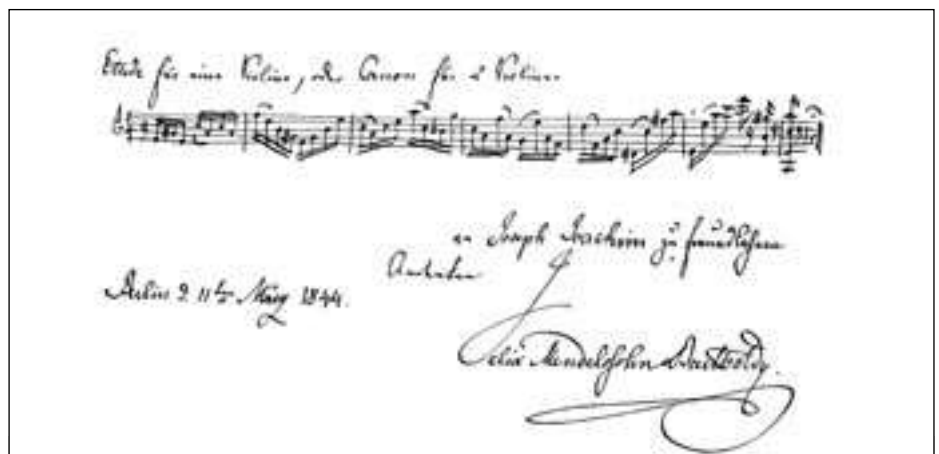 Etude für eine Violine, oder Canon für 2 Violinen
an Joseph Joachim zu freundlichem
Andenken
Berlin d. 11te März 1844.
Felix Mendelssohn Bartholdy.